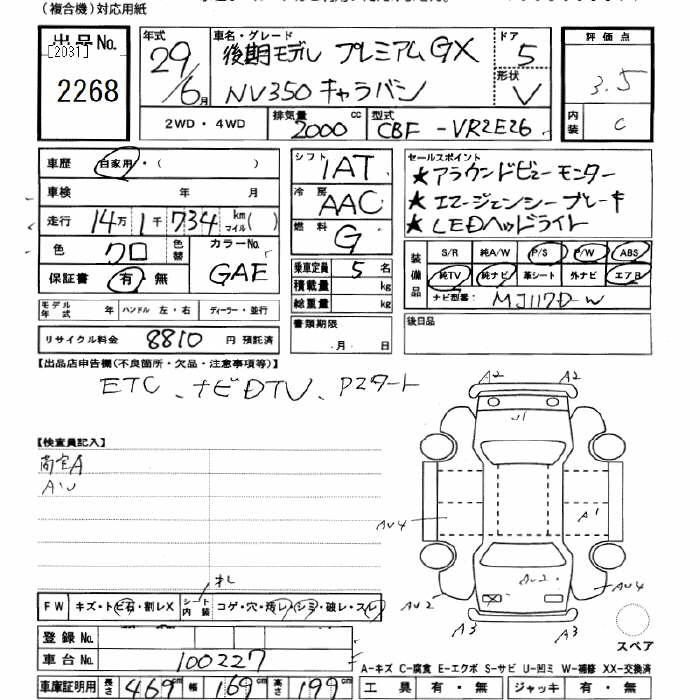 (複合機)対応用紙
出品No.
[2031]
2268
年式 29年 6月
車名・グレード 後期モデル プレミアムGX
NV350 キャラバン
ドア 5
形状 V
2WD・4WD
排気量 2000 cc
型式 CBF-VR2E26
評価点 3.5
内装 C
車歴 自家用・( )
車検 年 月
走行 14万 1千 734 km マイル( )
色 クロ 色替 カラーNo. GAE
保証書 有・無
モデル年式 年 ハンドル 左・右 ディーラー・並行
リサイクル料金 8810 円 預託済
シフト IAT
冷房 AAC
燃料 G
乗車定員 5 名
積載量 kg
総重量 kg
書類期限 .月 .日
セールスポイント
★アラウンドビューモニター
★エマージェンシーブレーキ
★LEDヘッドライト
装備品 S/R 純A/W P/S P/W ABS
純TV 純ナビ 革シート 外ナビ エアB
ナビ型番: MJ117D-W
後日品
【出品店申告欄(不良箇所・欠品・注意事項等)】
ETC、ナビDTV、Pスタート
【検査員記入】
A2 A2
A1
AU4
AU4
AU2
A3 A3
スペア
FW キズ・トビ石・割レX シート内装 コゲ・穴・汚レ・シミ・破レ・スレ
登録No.
車台No. 100227
A-キズ C-腐食 E-エクボ S-サビ U-凹ミ W-補修 XX-交換済
車庫証明用 長さ 469cm 幅 169cm 高さ 199cm
工具 有・無 ジャッキ 有・無